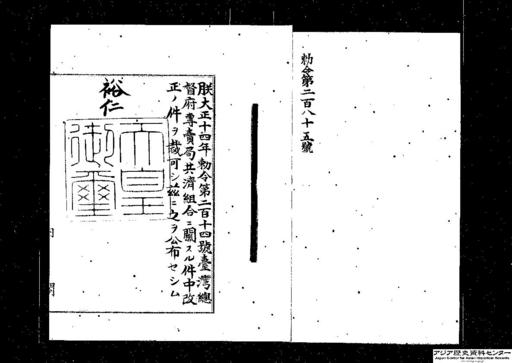 勅令第二百八十五號
朕大正十四年勅令第二百十四號臺灣總
督府專賣局共濟組合ニ關スル件中改
正ノ件ヲ裁可シ茲ニ之ヲ公布セシム
裕仁
天皇
御璽
内
閣
アジア歴史資料センター
Japan Center for Asian Historical Records